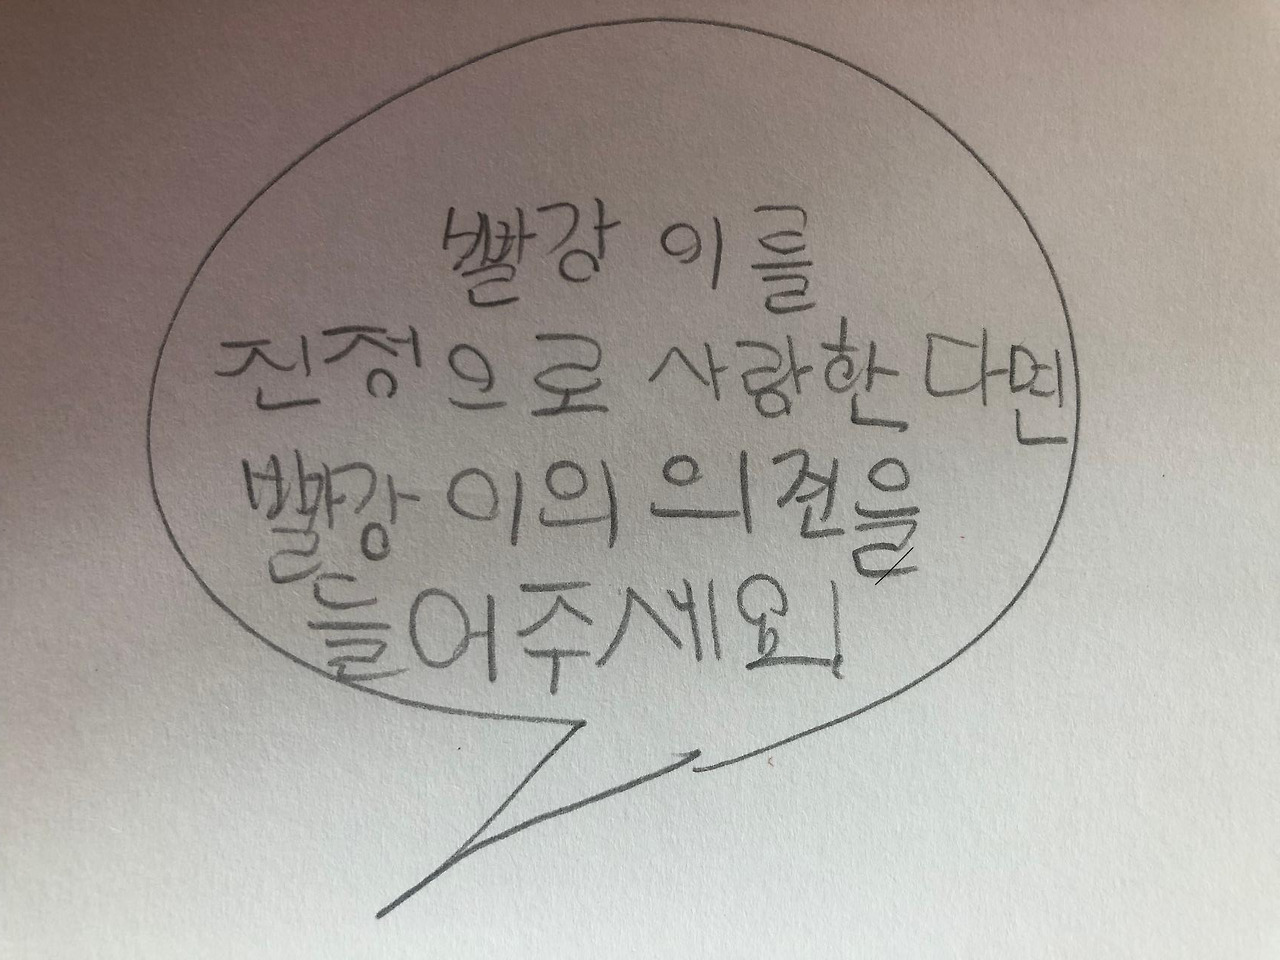 빨강 이를
진정으로 사랑한다면
빨강 이의 의견을
들어주세요